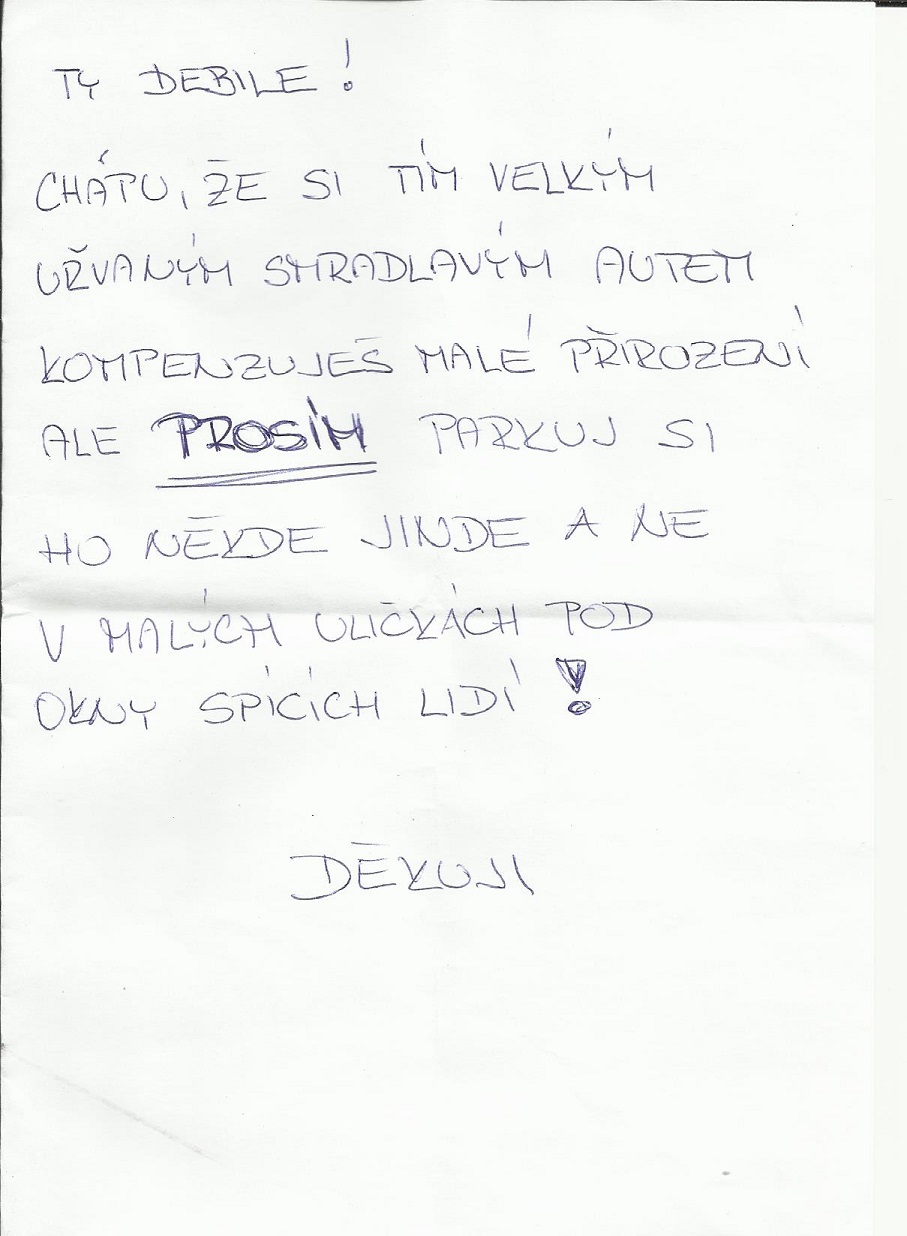 TY DEBILE!
CHÁPU, ŽE SI TÍM VELKÝM
UŘVANÝM SMRADLAVÝM AUTEM
KOMPENZUJEŠ MALÉ PŘIROZENÍ
ALE PROSÍM PARKUJ SI
HO NĚKDE JINDE A NE
V MALÝCH ULIČKÁCH POD
OKNY SPÍCÍCH LIDÍ!
DĚKUJI